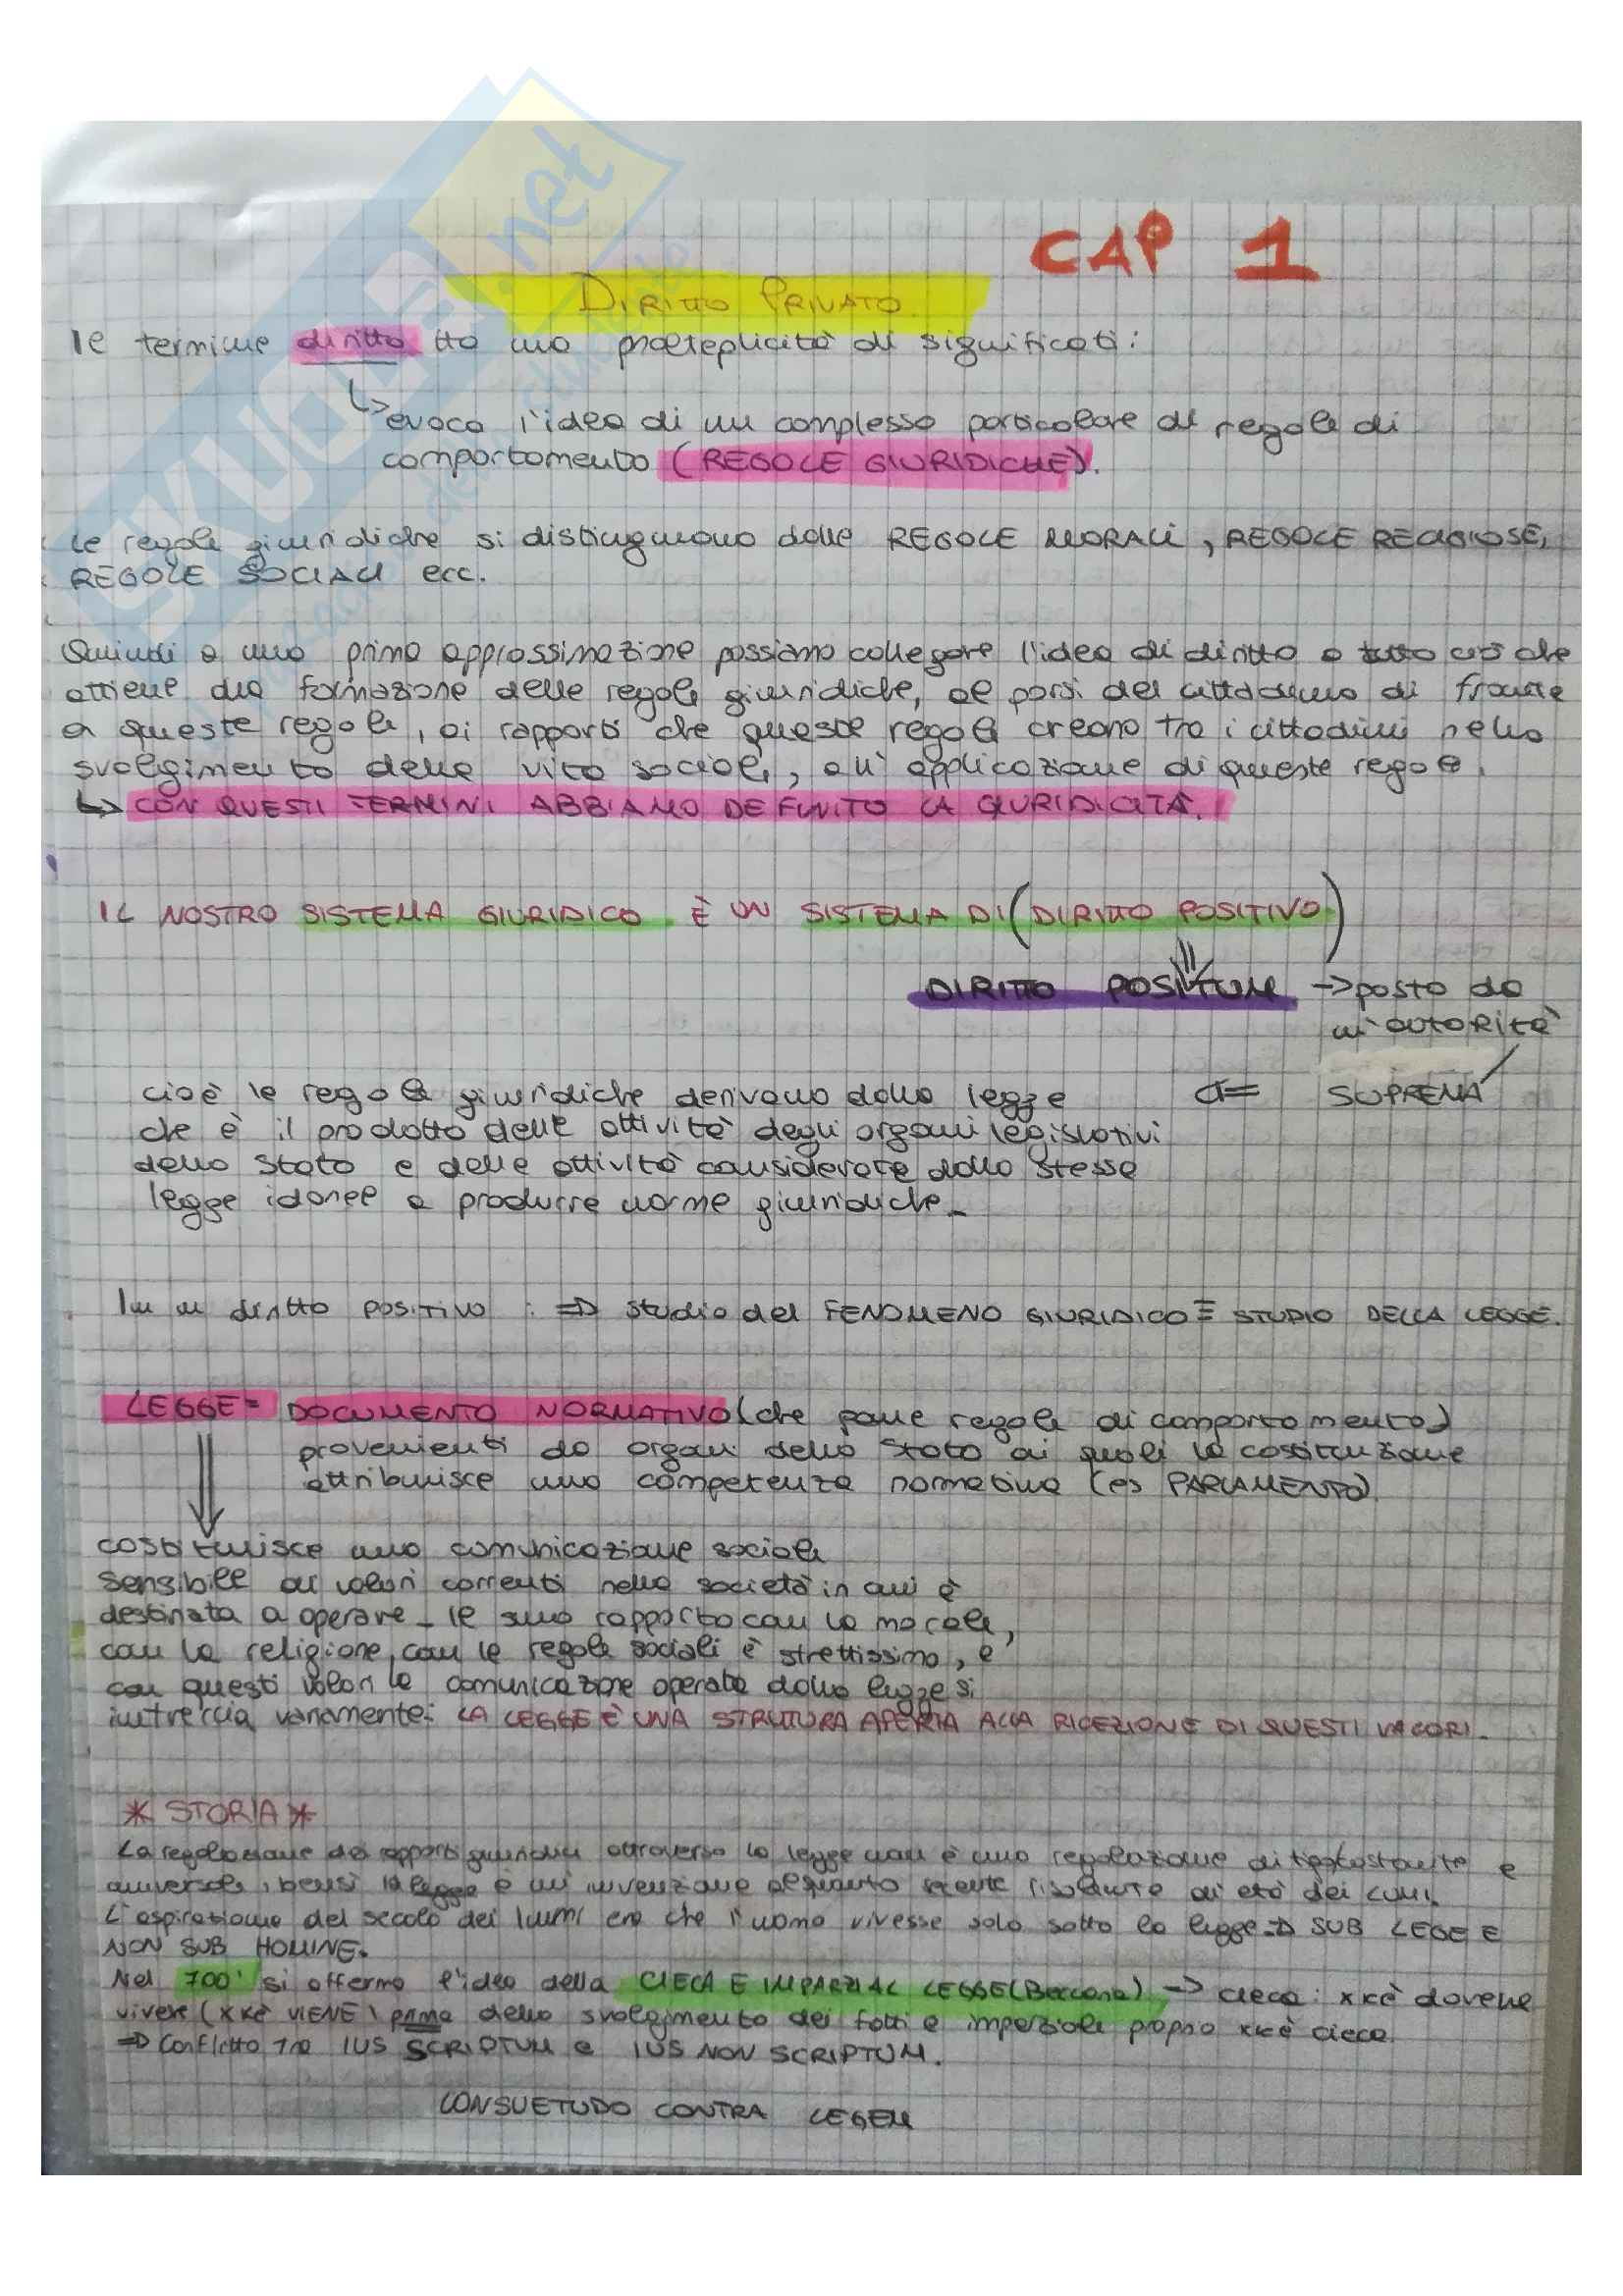 CAP 1
DIRITTO PRIVATO
Il termine diritto ha una molteplicità di significati:
↳> evoca l'idea di un complesso particolare di regole di
comportamento (REGOLE GIURIDICHE).
Le regole giuridiche si distinguono dalle REGOLE MORALI, REGOLE RELIGIOSE,
REGOLE SOCIALI ecc.
Quindi a una prima approssimazione possiamo collegare l'idea di diritto a tutto ciò che
attiene alla formazione delle regole giuridiche, al porsi del cittadino di fronte
a queste regole, ai rapporti che queste regole creano tra i cittadini nello
svolgimento della vita sociale, all'applicazione di queste regole.
↳> CON QUESTI TERMINI ABBIAMO DEFINITO LA GIURIDICITÀ.
IL NOSTRO SISTEMA GIURIDICO È UN SISTEMA DI (DIRITTO POSITIVO)
DIRITTO POSITUM -> posto da
un'autorità
SUPREMA
cioè le regole giuridiche derivano dalla legge
che è il prodotto delle attività degli organi legislativi
dello Stato e delle attività considerate dalla stessa
legge idonee a produrre norme giuridiche_
In un diritto positivo : => studio del FENOMENO GIURIDICO = STUDIO DELLA LEGGE.
LEGGE = DOCUMENTO NORMATIVO (che pone regole di comportamento)
provenienti da organi dello Stato ai quali la costituzione
attribuisce una competenza normativa (es PARLAMENTO)
costituisce una comunicazione sociale
sensibile ai valori correnti nella società in cui è
destinata a operare_ Il suo rapporto con la morale,
con la religione, con le regole sociali è strettissimo, e
con questi valori la comunicazione operata dalla legge si
intreccia variamente: LA LEGGE È UNA STRUTTURA APERTA ALLA RICEZIONE DI QUESTI VALORI.
* STORIA *
La regolazione dei rapporti giuridici attraverso la legge non è una regolazione di tipo costante e
universale, bensì la legge è un'invenzione alquanto recente risalente all'età dei LUMI.
L'aspirazione del secolo dei lumi era che l'uomo vivesse solo sotto la legge => SUB LEGE E
NON SUB HOMINE.
Nel 700' si afferma l'idea della CIECA E IMPARZIAL LEGGE (Beccaria) -> cieca: xkè doveva
vivere (xkè VIENE) prima dello svolgimento dei fatti e imparziale proprio xkè cieca.
=> Conflitto tra IUS SCRIPTUM e IUS NON SCRIPTUM.
CONSUETUDO CONTRA LEGEM
SKUOLA.net